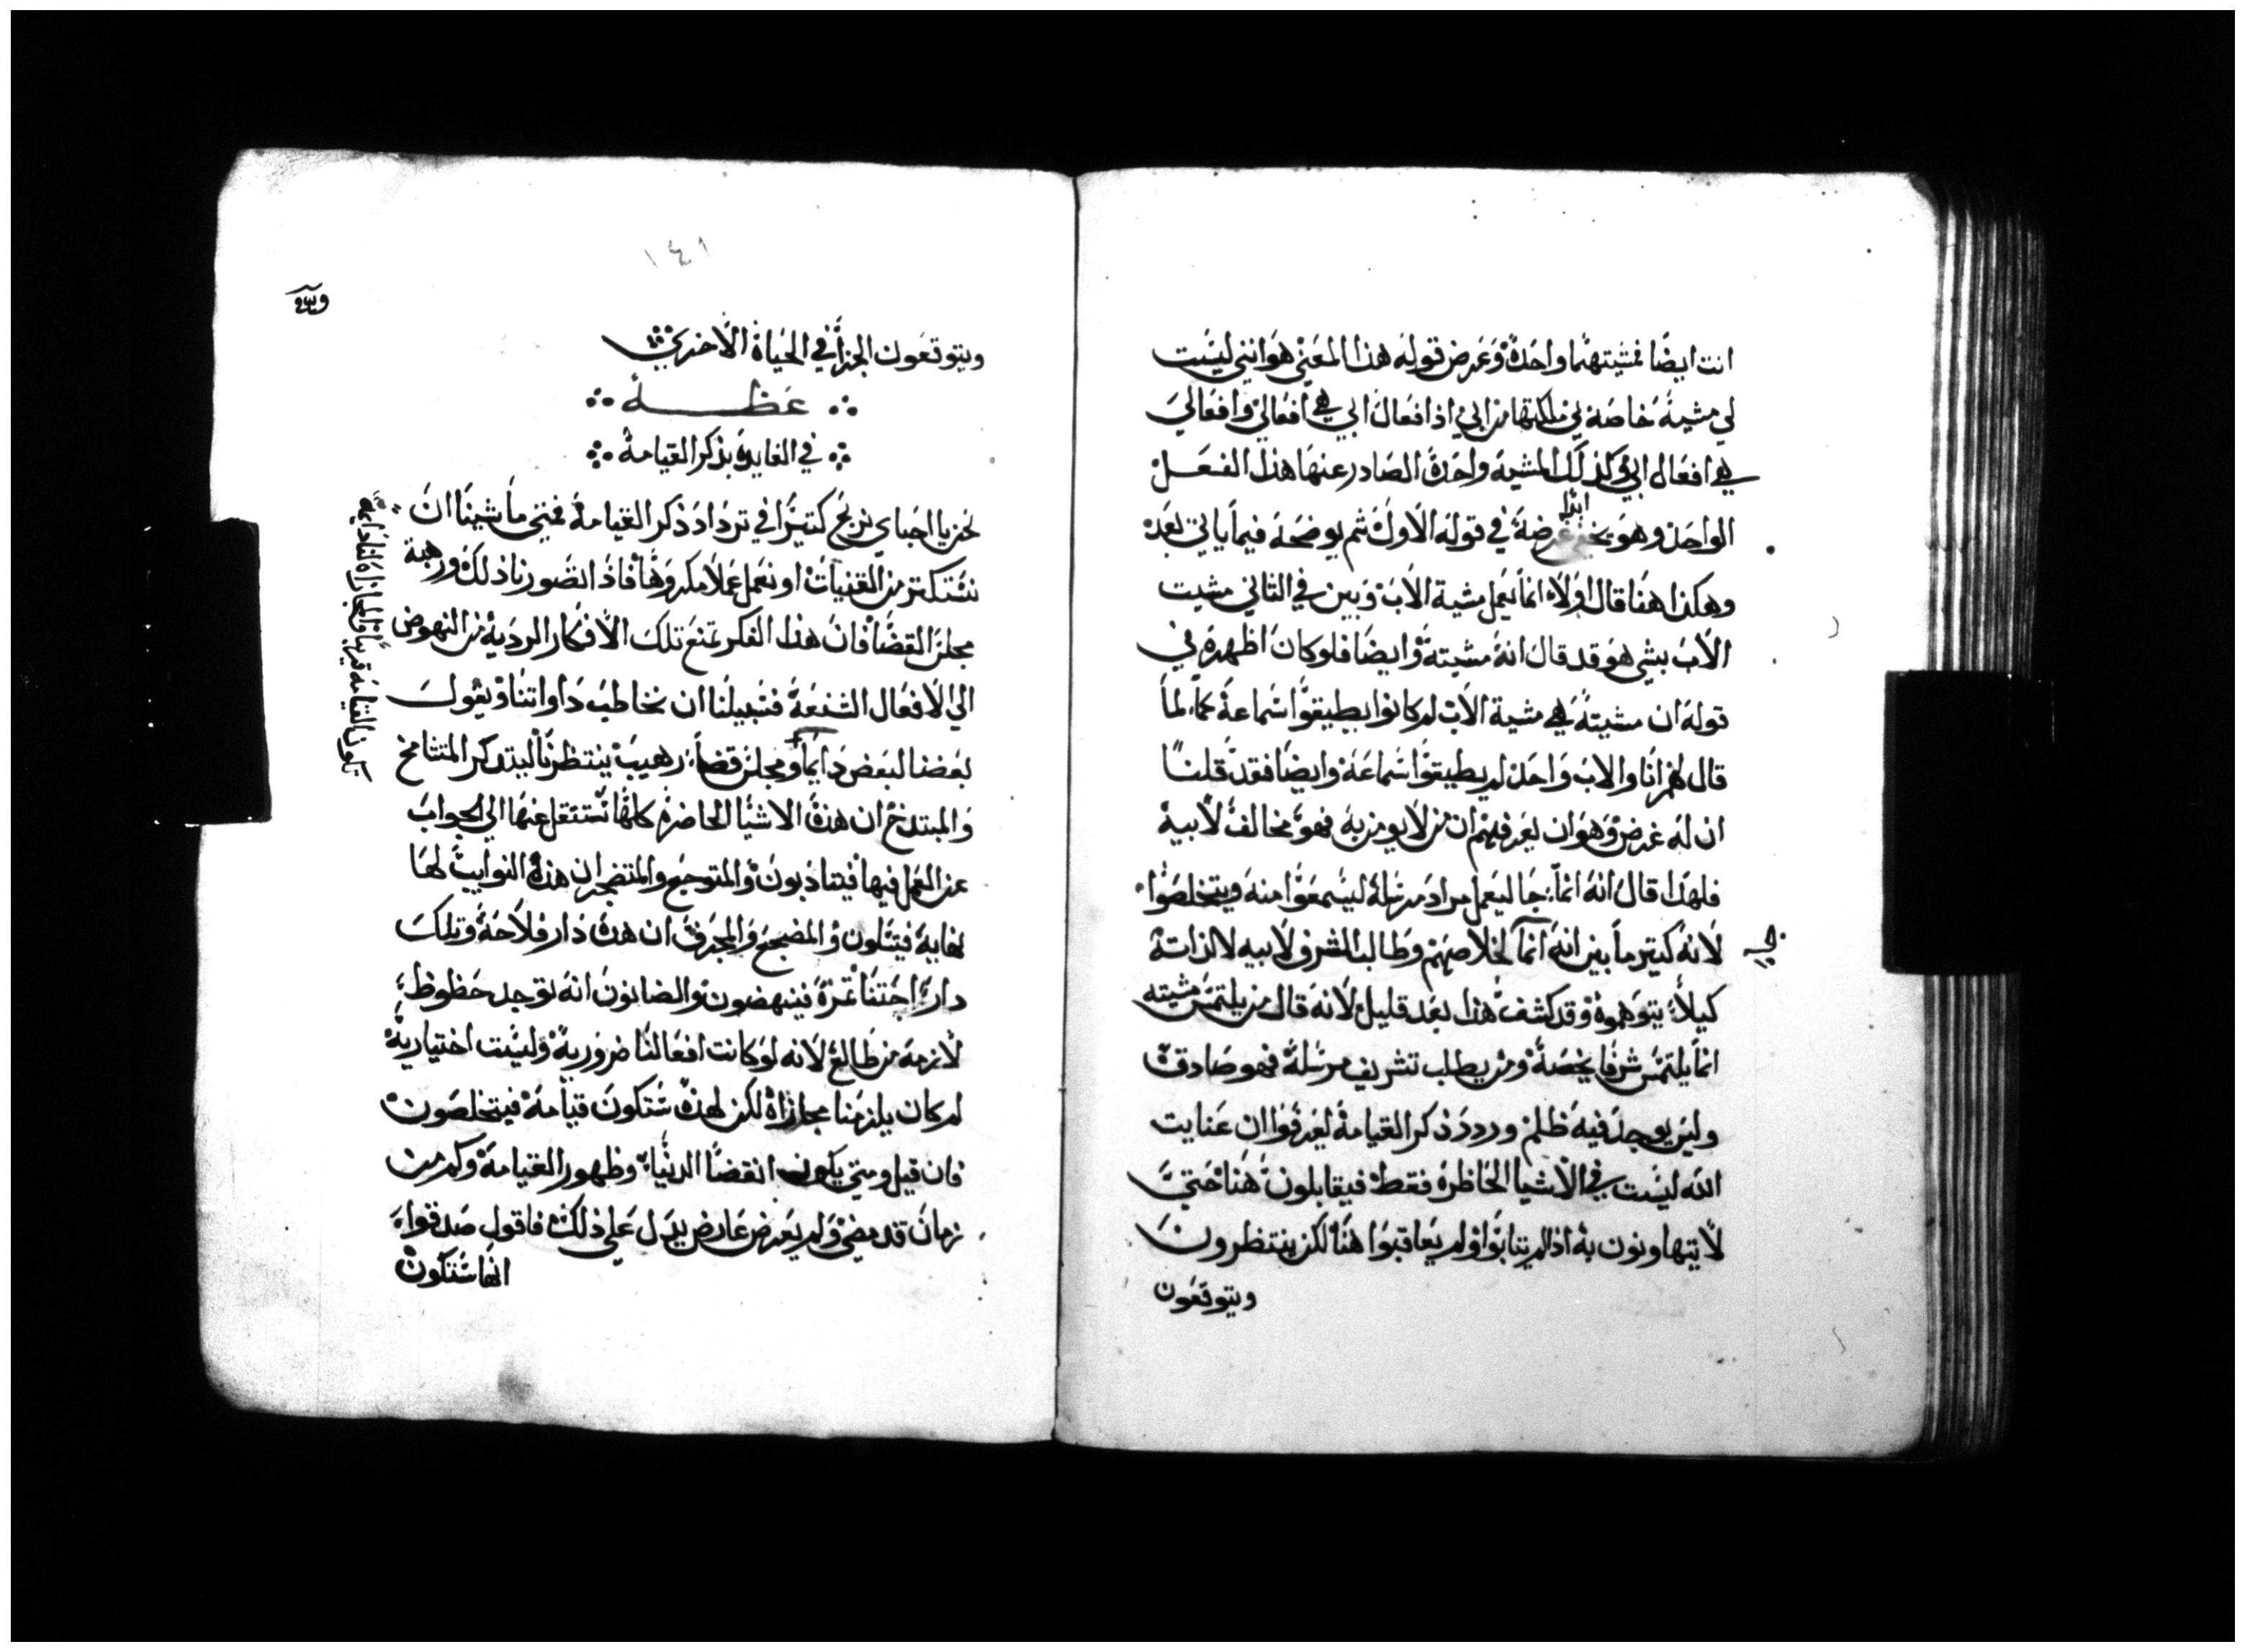 انت ايضًا فمشيتهما واحدة وغرض قوله هذا المعني هو انني ليست
لي مشية خاصة بي ملكتها من ابي اذ افعال ابي هي افعالي وافعالي
هي افعال ابي وكذلك المشية واحدة الصادر عنها هذا الفعل
الواحد وهو يخفي غرضة في قوله الاول ثم يوضحة فيما ياتي بعده
وهكذا هنا قال اولا انما يعمل مشية الاب وبين في الثاني مشيت
الاب بيشي هو قد قال انه مشيتة وايضا فلو كان اظهره في
قوله ان مشيتة هي مشية الاب لم كانوا يطيقوا سماعة كما لما
قال لهم انا والاب واحد لم يطيقوا سماعة وايضا فقد قلنا
ان له غرض وهو ان يعرفهم ان من لا يومن به فهو مخالف لابيه
فلهذا قال انه انما جا ليعمل مراد مرسله ليسمعوا منه ويتخلصوا
لانه كيتر ما بين انه انما لخلاصهم وطالب الشرف لابيه لا لذاتة
كيلا يتوهموه وقد كشف هذا بعد قليل لانه قال من يلتمس مشيته
انما يلتمس شرفا يخصة ومن يطلب تشريف مرسله فهو صادق
وليس يوجد فيه ظلم وردد ذكر القيامة ليعرفوا ان عنايت
الله ليست في الاشيا الحاظره فقط فيقابلون هنا حتي
لا يتهاونون به اذا لم يتابوا او لم يعاقبوا هنا لكن ينتظرون
ويتوقعون
١٤١
ويتوقعون الجزا في الحياة الاخري
عظة
في الفايدة بذكر القيامة
نحن يا احباي نربح كتيرا في ترداد ذكر القيامة فمتي ما شينا ان
نستكتر من القنيات او نعمل عملا مكروها فاذا تصورنا ذلك ورهبة
مجلس القضا فان هذا الفكر يمنع تلك الافكار الردية من النهوض
الي الافعال الشنعة فسبيلنا ان نخاطب داواتنا ويقول
بعضنا لبعض دايما ومجلس قضا رهيب ينتظرنا ليتدكر المتشامخ
والمبتدخ ان هذه الاشيا الحاضرة كلها تستنقل عنها الي الجواب
عن العمل فيها فيتادبون والمتوجع والمتضجر ان هذه النوايب لها
نهاية فيتسلون والمضجع والمجزف ان هذه دار فلاحة وتلك
دار اجتنا ثمرة فينهضون والضانون انه توجد حظوظ
لازمة من طالع لانه لو كانت افعالنا ضرورية وليست اختيارية
لم كان يلزمنا مجازاة لكن لهذه ستكون قيامة فيتخلصون
فان قيل ومتي يكون انقضا الدنيا وظهور القيامة وكم من
زمان قد مضي ولم يعرض عارض يدل علي ذلك فاقول صدقوا
انها ستكون
تكون القيامة قريبا